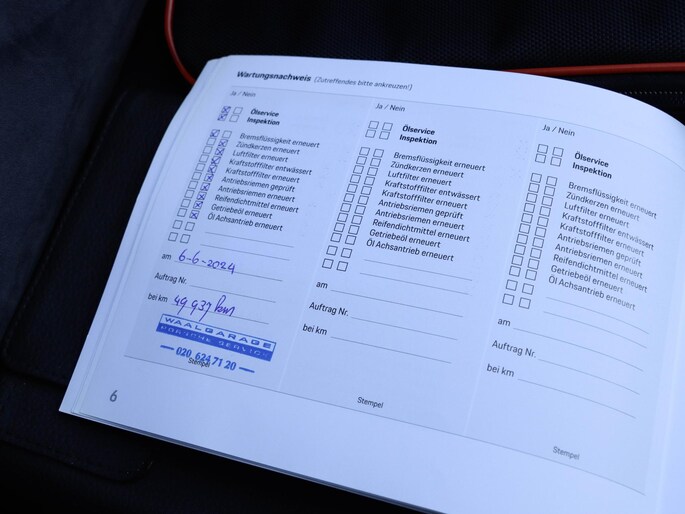 Wartungsnachweis (Zutreffendes bitte ankreuzen!)
Ja / Nein
Ölservice
Inspektion
Bremsflüssigkeit erneuert
Zündkerzen erneuert
Luftfilter erneuert
Kraftstofffilter entwässert
Kraftstofffilter erneuert
Antriebsriemen geprüft
Antriebsriemen erneuert
Reifendichtmittel erneuert
Getriebeöl erneuert
Öl Achsantrieb erneuert
am 6-6-2024
Auftrag Nr.
bei km 49937 km
WAALGARAGE
PORSCHE SERVICE
020 624 71 20
Stempel
Ja / Nein
Ölservice
Inspektion
Bremsflüssigkeit erneuert
Zündkerzen erneuert
Luftfilter erneuert
Kraftstofffilter entwässert
Kraftstofffilter erneuert
Antriebsriemen geprüft
Antriebsriemen erneuert
Reifendichtmittel erneuert
Getriebeöl erneuert
Öl Achsantrieb erneuert
am
Auftrag Nr.
bei km
Stempel
Ja / Nein
Ölservice
Inspektion
Bremsflüssigkeit erneuert
Zündkerzen erneuert
Luftfilter erneuert
Kraftstofffilter entwässert
Kraftstofffilter erneuert
Antriebsriemen geprüft
Antriebsriemen erneuert
Reifendichtmittel erneuert
Getriebeöl erneuert
Öl Achsantrieb erneuert
am
Auftrag Nr.
bei km
Stempel
6